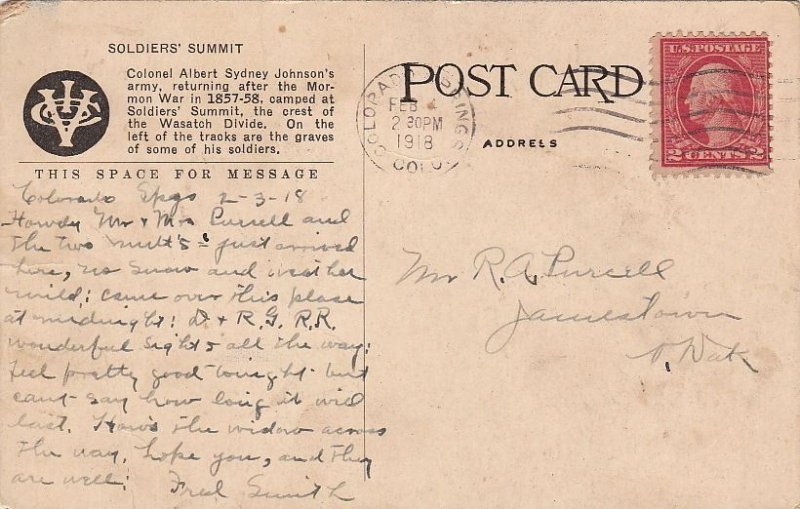 SOLDIERS' SUMMIT
Colonel Albert Sydney Johnson's
army, returning after the Mor-
mon War in 1857-58, camped at
Soldiers' Summit, the crest of
the Wasatch Divide. On the
left of the tracks are the graves
of some of his soldiers.
THIS SPACE FOR MESSAGE
Colorado Spgs 2-3-18
Howdy Mr & Mrs Purcell and
the two - just arrived
here, no snow and weather
mild; came over this place
at midnight; D & R.G. R.R.
wonderful sights all the way;
feel pretty good tonight but
cant say how long it will
last. How's the widow across
the way, hope you, and they
are well;
Fred Smith
POST CARD
ADDRESS
COLORADO SPRINGS
FEB 4
2 30PM
1918
COLO.
U.S. POSTAGE
2 CENTS 2
Mr R. A. Purcell
Jamestown
N. Dak